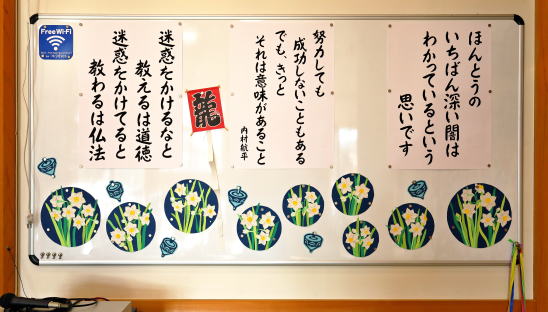 ほんとうの
いちばん深い闇は
わかっているという
思いです
努力しても
成功しないこともある
でも、きっと
それは意味があること
内村航平
龍
迷惑をかけるなと
教えるは道徳
迷惑をかけてると
教わるは仏法
Free Wi-Fi